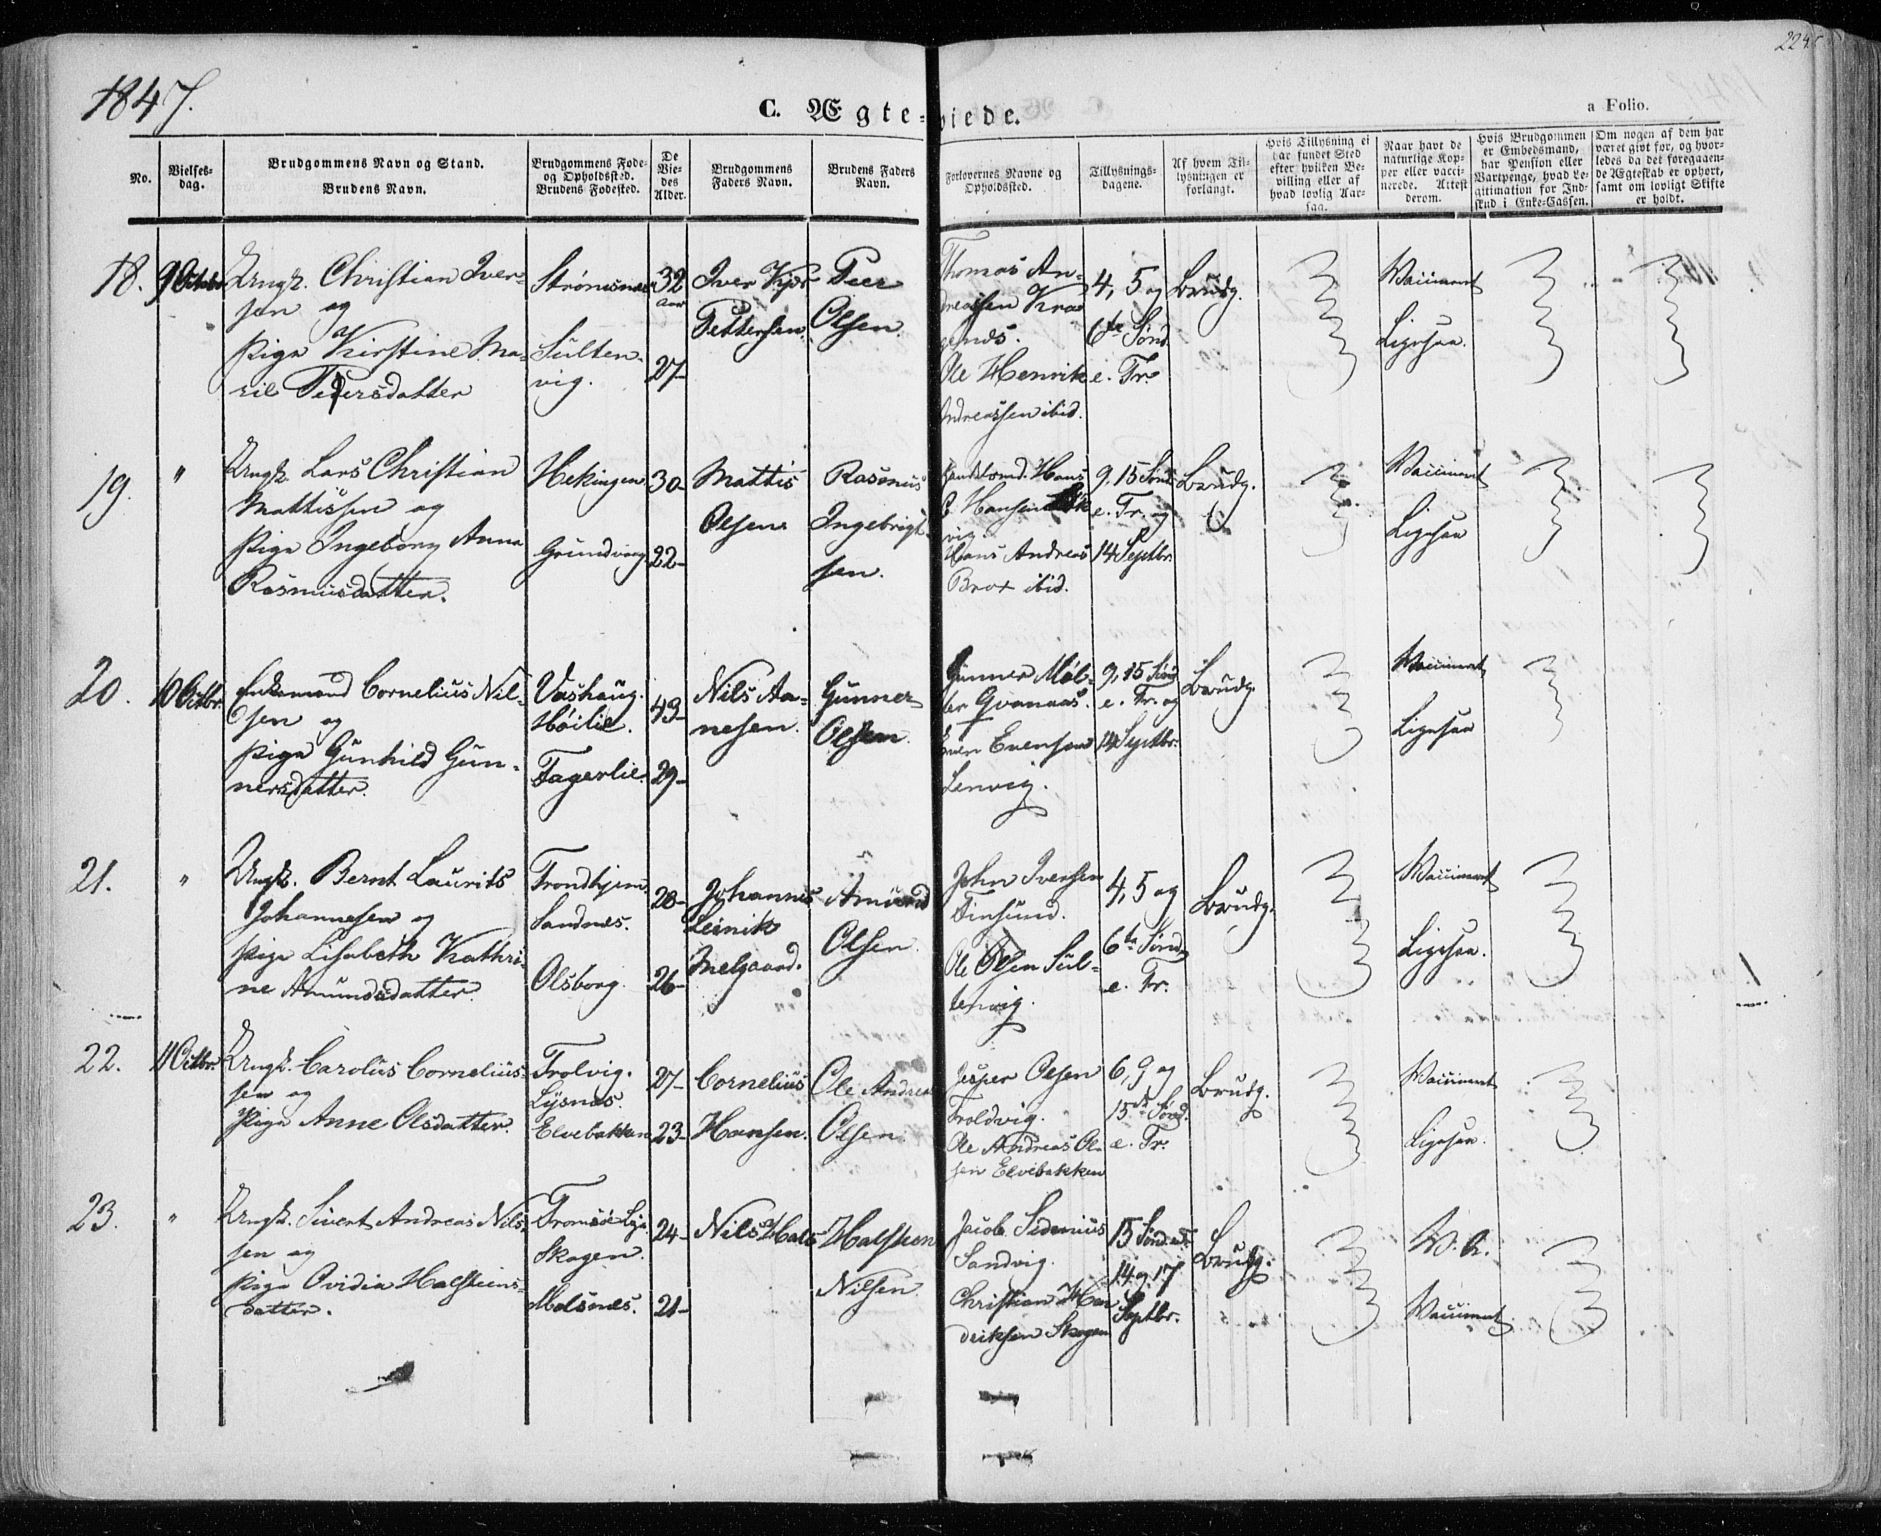 1847.
224
C. Ægteviede.
a Folio.
No.
Vielses-
dag.
Brudgommens Navn og Stand.
Brudens Navn.
Brudgommens Føde-
og Opholdssted.
Brudens Fødested.
De
Vie-
des
Alder.
Brudgommens
Faders Navn.
Brudens Faders
Navn.
Forlovernes Navne og
Opholdssted.
Tillysnings-
dagene.
Af hvem Til-
lysningen er
forlangt.
Hvis Tillysning ei
har fundet Sted
efter hvilken Be-
villing eller af
hvad lovlig Aar-
saa.
Naar havt de
naturlige Kop-
per eller vacci-
nerede. Attest
derom.
Hvis Brudgommen
er Embedsmand,
har Pension eller
Vartpenge, hvad Le-
gitimation for Ind-
skud i Enke-Cassen.
Om nogen af dem har
været givt for, og hvor-
ledes da det foregaaen-
de Ægteskab er ophørt,
samt om lovligt Skifte
er holdt.
18.
9 Octobr
Ungk. Christian Iver-
sen og
Pige Kirstine Ma-
rie Pedersdatter
Strømsnes
Sulten-
vig.
32
aar
27-
Iver
Pettersen.
Peer
Olsen.
Thomas An-
dreassen
Ole Henrik
Andreassen ibid.
4, 5 og
6te Sønd.
e. Tr.
Brudg.
Vaccineret
Ligesaa.
19.
"
Ungk. Lars Christian
Mattissen og
Pige Ingeborg Anna
Rasmusdatter.
Hekingen
Grundvaag
30-
22-
Mattis
Olsen
Rasmus
Ingebrigt-
sen.
Hans
Hansen
vig.
Hans Andreas
Brox ibid.
9, 15 Sønd.
e. Tr. og
14 Septbr.
Brudg.
Vaccineret
Ligesaa
20.
10 Octbr.
Enkemand Cornelius Nil-
sen og
Pige Gunhild Gun-
nersdatter.
Vashaug.
Høilie.
Fagerlie
43-
29-
Nils Aa-
nesen.
Gunner
Olsen.
Gunner Møl-
ler Gvanaas.
Even Evensen
Lenvig.
9, 15 Sønd
e. Tr. og
14 Septbr.
Brudg.
Vaccineret
Ligesaa
21.
"
Ungk. Bernt Laurits
Johannesen og
Pige Lisabeth Kathri-
ne Amundsdatter.
Trondhjem
Sandnes.
Olsborg.
28-
26-
Johannes
Leinik
Melgaard.
Amund
Olsen.
John Iversen
Finsund.
Ole Olsen Sul-
tenvig.
4, 5 og
6te Sønd.
e. Tr.
Brudg.
Vaccineret
Ligesaa.
22.
11 Octbr.
Ungk. Carolus Cornelius-
sen og
Pige Anne Olsdatter.
Trolvig.
Lysnes.
Elvebakken
27-
23-
Cornelius
Hansen.
Ole Andreas
Olsen.
Jesper Olsen
Troldvig.
Ole Andreas Ol-
sen Elvebakken
6, 9 og
15de Sønd.
e. Tr.
Brudg.
Vaccineret
Ligesaa.
23.
"
Ungk. Sivert Andreas Nil-
sen og
Pige Ovidia Halsteens-
datter.
Tromsøe
Skogen.
Malsnes.
24-
21-
Nils Hals
Halsteen
Nilsen
Jacob Sidenius
Sandvig.
Christian Hen
driksen Skogen
15 Sønd. e. Tr.
14 og 17
Septbr.
Brudg.
Vaccineret